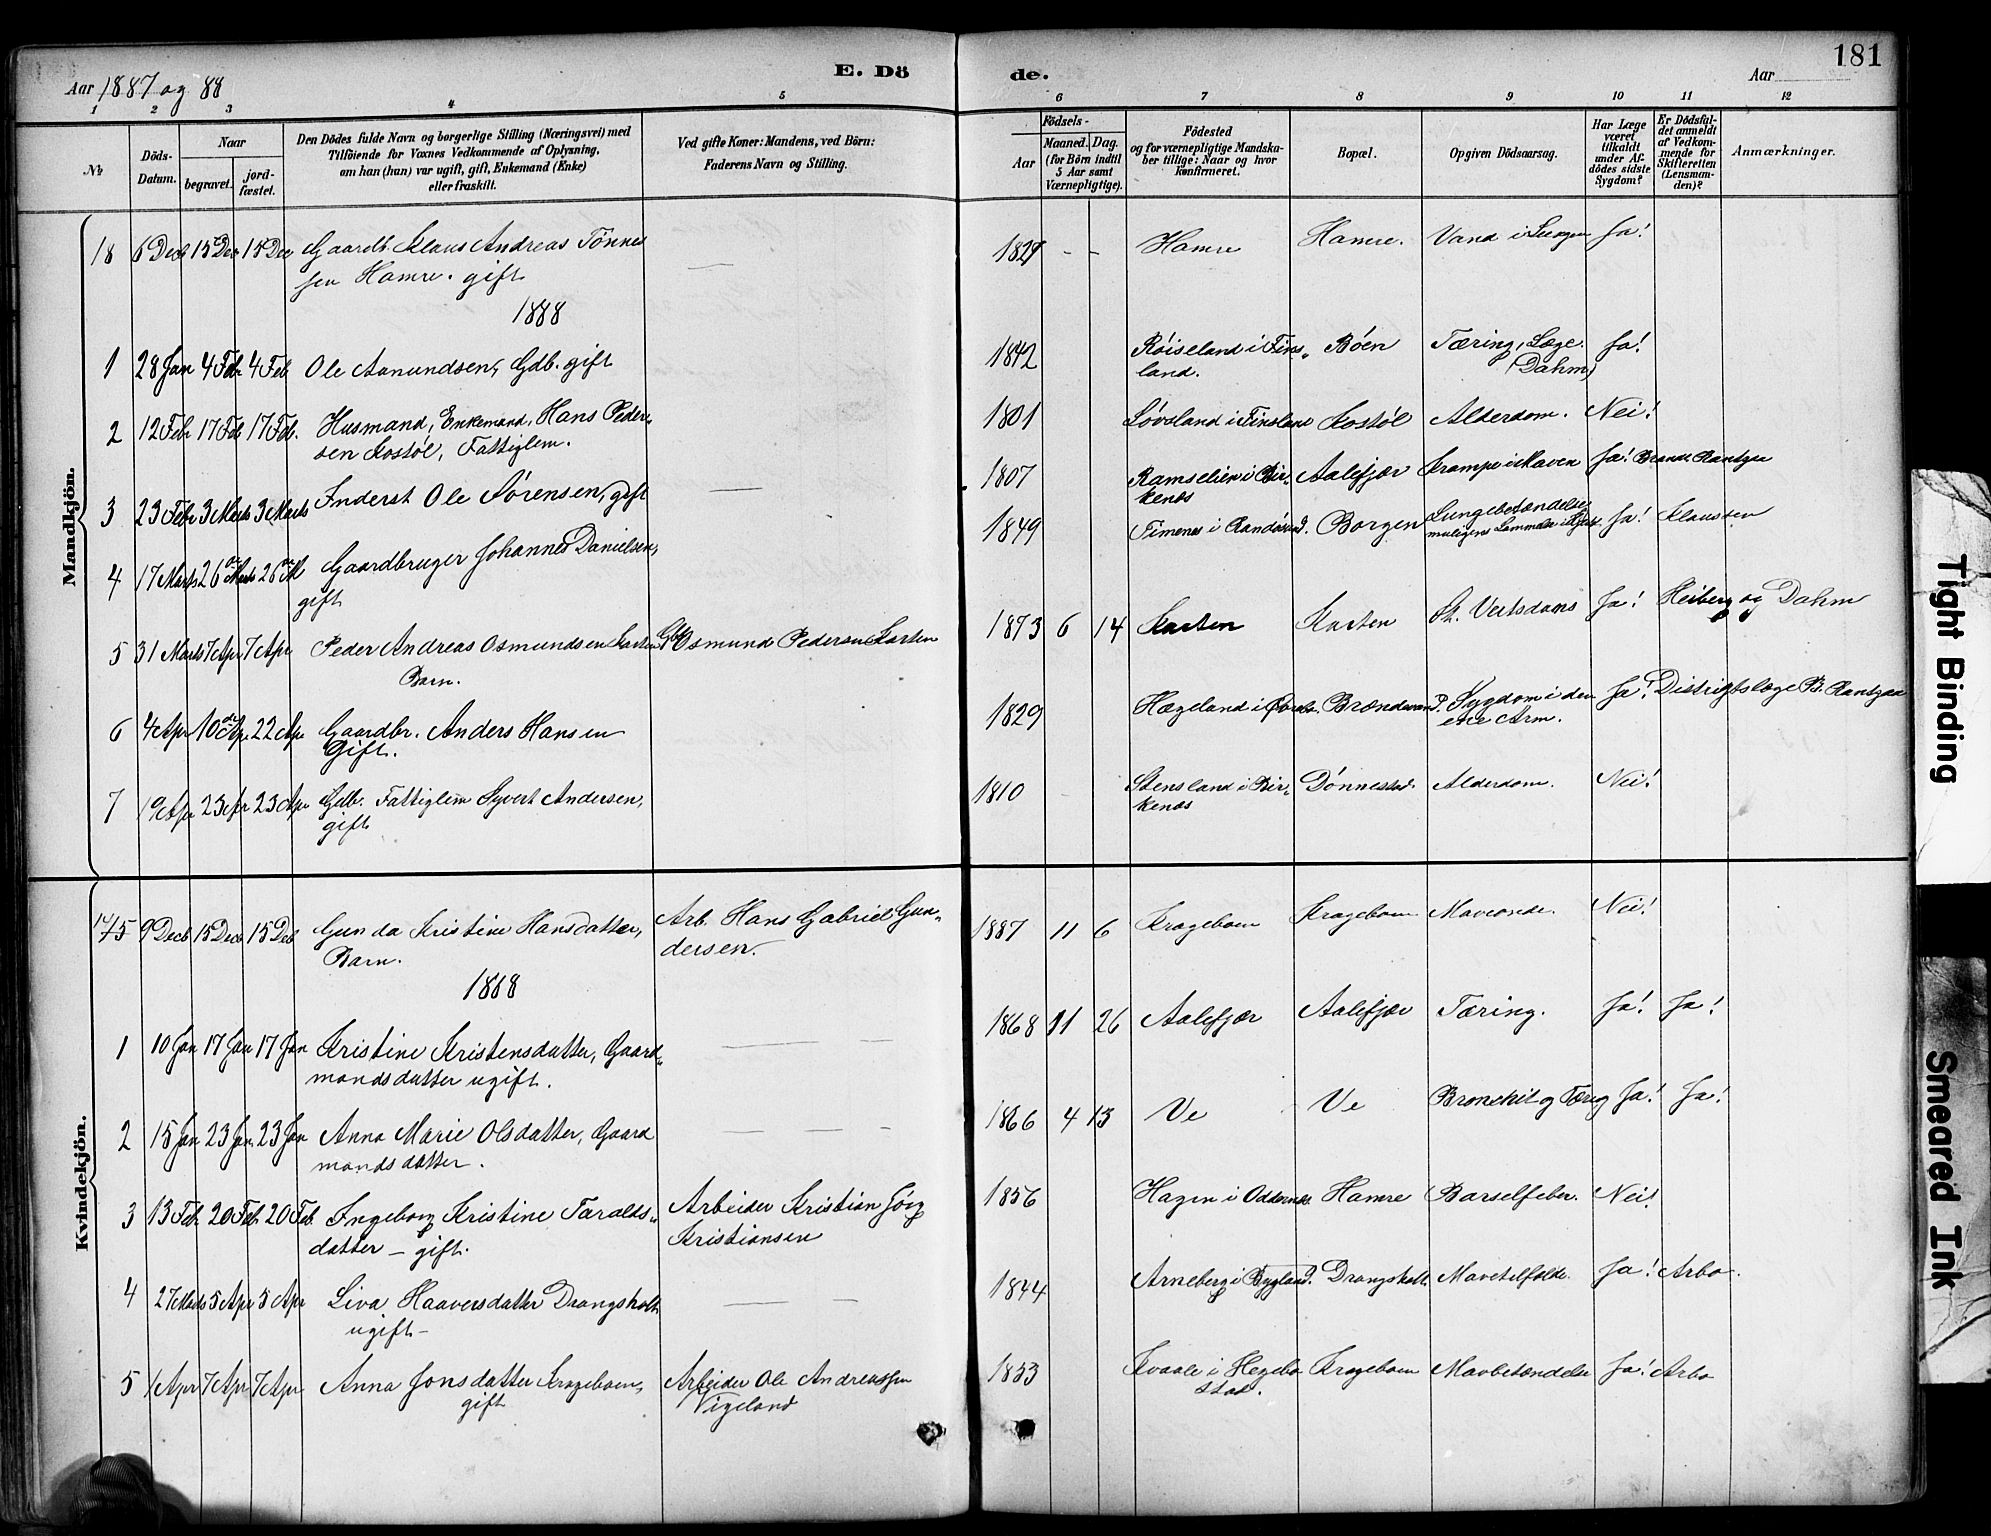 Aar 1887 og 88
E. Dö
de.
Aar
181
1 2 3 4 5 6 7 8 9 10 11 12
№
Döds-
Datum.
Naar
begravet.
jord-
fæstet.
Den Dödes fulde Navn og borgerlige Stilling (Næringsvei) med
Tilföiende for Voxnes Vedkommende af Oplysning,
om han (hun) var ugift, gift, Enkemand (Enke)
eller fraskilt.
Ved gifte Koner: Mandens, ved Börn:
Faderens Navn og Stilling.
Födsels-
Aar
Maaned.
Dag.
(for Börn indtil
5 Aar samt
Værnepligtige).
Födested
og for værnepligtige Mandska-
ber tillige: Naar og hvor
konfirmeret.
Bopæl.
Opgiven Dödsaarsag.
Har Læge
været
tilkaldt
under Af-
dödes sidste
Sygdom?
Er Dödsfal-
det anmeldt
af Vedkom-
mende for
Skifteretten
(Lensman-
den)?
Anmærkninger.
Mandkjön.
18 6 Decb 15 Dec 15 Dec Gaardb. Klaus Andreas Tönne
sen Hamre. gift — 1829 - - Hamre Hamre. Vand i Lungen Ja!
1888
1 28 Jan 4 Febr 4 Feb Ole Aamundsen, Gdb. gift 1842 Röiseland i Fins„
land. Böen Tæring, Læge
(Dahm) Ja!
2 12 Febr 17 Feb 17 Feb. Husmand, Enkemand, Hans Peder„
sen Kostöl, Fattiglem. 1801 Lövsland i Finsland Kostöl Alderdom. Nei!
3 23 Febr 3 Marts 3 Marts Inderst Ole Sörensen, gift — 1807 Ramselien i Bir„
kenæs Aalefjær Krampe i Maven Ja! Brandt Rantzau
4 17 Marts 26de Marts 26de M Gaardbruger Johannes Danielsen,
gift 1849 Timenes i Randösund. Borgen Lungebetændelse
muligens Ja! Klaussen
5 31 Marts 7 Apr 7 Apr Peder Andreas Osmundsen Karten
Barn. Gb. Osmund Pedersen Karten 1873 6 14 Karten Karten St. Veitsdans Ja! Heiberg og Dahm
6 4 Apr 10de Apr. 22 Apr Gaardbr. Anders Hansen
Gift. 1829 Hægeland i Brændevand. Sygdom i den
ene Arm. Ja! Distriktslæge B. Rantzau
7 19 Apr 23 Apr 23 Apr Gdb. Fattiglem Syvert Andersen,
gift 1810 Stensland i Bir„
kenæs Dönnestad. Alderdom. Nei!
Kvindekjön.
15 9 Decb 15 Decb 15 Deb Gunda Kristine Hansdatter,
Barn. Arb. Hans Gabriel Gun„
dersen. 1887 11 6 Krageboen Krageboen Maveonde. Nei!
1888
1 10 Jan 17 Jan 17 Jan Kristine Kristensdatter, Gaard„
mandsdatter ugift. — — 1868 11 26 Aalefjær Aalefjær Tæring. Ja! Ja!
2 15 Jan 23 Jan. 23 Jan Anna Marie Olsdatter, Gaard
mandsdatter. — — - 1866 4 13 Ve Ve Bronchit og Tærig Ja! Ja!
3 13 Feb 20 Feb 20 Feb Ingeborg Kristine Taralds„
datter — gift. Arbeider Kristian Jörg
Kristiansen 1856 Hagen i Oddernes Hamre Barselfeber. Nei!
4 27 Marts 5 Apr 5 Apr Liva Haaversdatter Drangsholt
ugift — — — 1844 Arneberg i Bygland. Drangsholt. Ja! Arbo.
5 1 Apr 7 Apr 7 Apr Anna Jonsdatter Krageboen,
gift Arbeider Ole Andreassen
Vigeland 1853 Kvaale i Hegebo
stad. Krageboen Mavbetændelse Ja! Arbo
Tight Binding
Smeared Ink